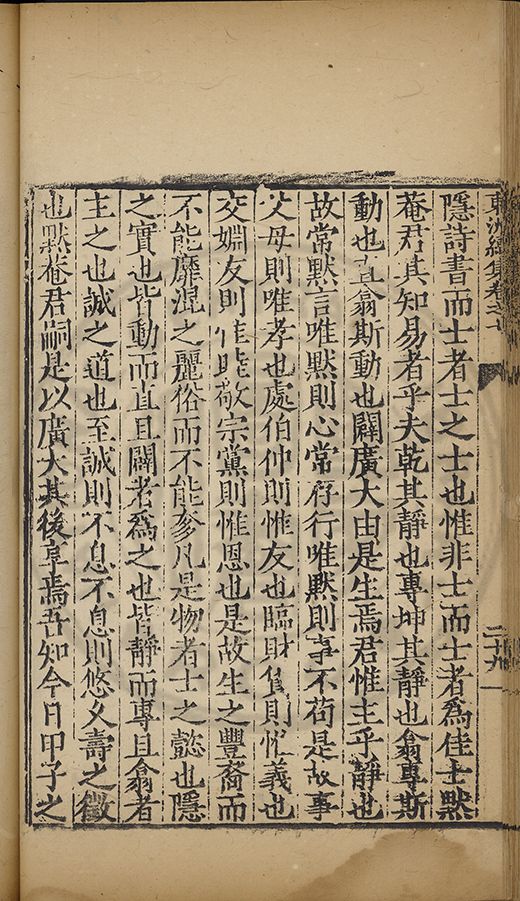 東洲續集卷之七
二十九
隱詩書而士者士之士也惟非士而士者爲佳士默
菴君其知易者乎夫乾其靜也專坤其靜也翕專斯
動也直翕斯動也闢廣大由是生焉君惟主乎靜也
故常默言唯默則心常存行唯默則事不苟是故事
父母則唯孝也處伯仲則惟友也臨財貨則惟義也
交婣友則惟敬宗黨則惟恩也是故生之豐裔而
不能靡混之麗俗而不能奓凡是物者士之懿也隱
之實也皆動而直且闢者爲之也皆靜而專且翕者
主之也誠之道也至誠則不息不息則悠久壽之徵
也默菴君嗣是以廣大其後享焉吾知今日甲子之